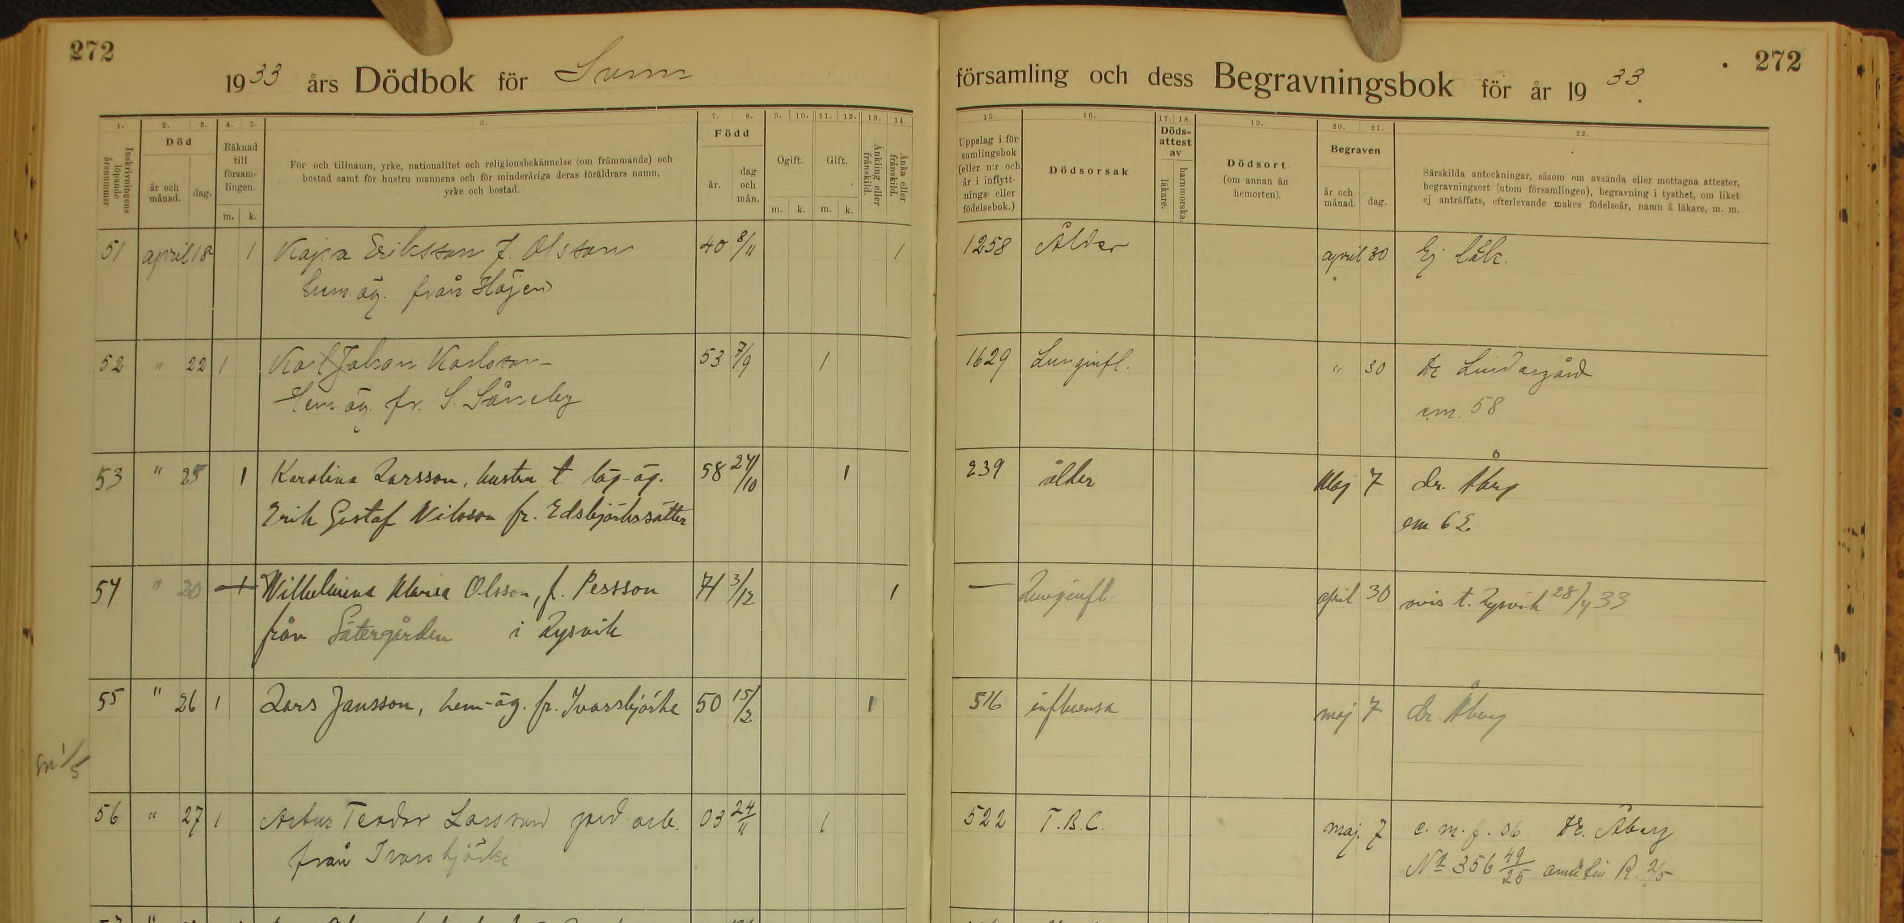 272
1933 års Dödbok för Sunne
församling och dess Begravningsbok för år 1933.
272
1. 2. 3. 4. 5. 6. 7. 8. 9. 10. 11. 12. 13. 14.
Inskrivningens löpande årsnummer
Död
år och månad.
dag.
Räknad till församlingen.
m. k.
För- och tillnamn, yrke, nationalitet och religionsbekännelse (om främmande) och
bostad samt för hustru mannens och för minderåriga deras föräldrars namn,
yrke och bostad.
Född
år.
dag och mån.
Ogift.
m. k.
Gift.
m. k.
Änkling eller frånskild.
Änka eller frånskild.
15. 16. 17. 18. 19. 20. 21. 22.
Uppslag i församlingsbok
(eller n:r och
år i inflyttnings- eller
födelsebok.)
Dödsorsak
Dödsattest av
läkare.
barnmorska
Dödsort
(om annan än
hemorten).
Begraven
år och månad.
dag.
Särskilda anteckningar, såsom om avsända eller mottagna attester,
begravningsort (utom församlingen), begravning i tysthet, om liket
ej anträffats, efterlevande makes födelseår, namn å läkare, m. m.
51 april 18 1 Kajsa Eriksson f. Olsson 40 8/11 1 1258 Ålder april 30 Ej läk.
hem.äg. från Höjen
52 " 22 1 Karl Johan Karlsson 53 7/9 1 1629 Lunginfl. " 30 Dr Lindegård
hem.äg. fr. S. Såneby em. 58
53 " 25 1 Karolina Larsson, hustru t. läg-äg. 58 24/10 1 239 ålder Maj 7 dr. Åberg
Erik Gustaf Nilsson fr. Edsbjörkssätter em 62
54 " 20 1 Wilhelmina Maria Olsson, f. Persson 71 3/12 1 — Lunginfl. april 30 avis t. Lysvik 28/4 33
från Sätergården i Lysvik
55 " 26 1 Lars Jansson, hem-äg. fr. Ivarsbjörke 50 15/2 1 516 influensa maj 7 dr. Åberg
m 1/5
56 " 27 1 Artur Teodor Larsson jord.arb. 03 24/11 1 522 T.B.C. maj 7 e. m. f. 06 Dr. Åberg
från Ivarsbjörke No 356 49/25 R. 2/5